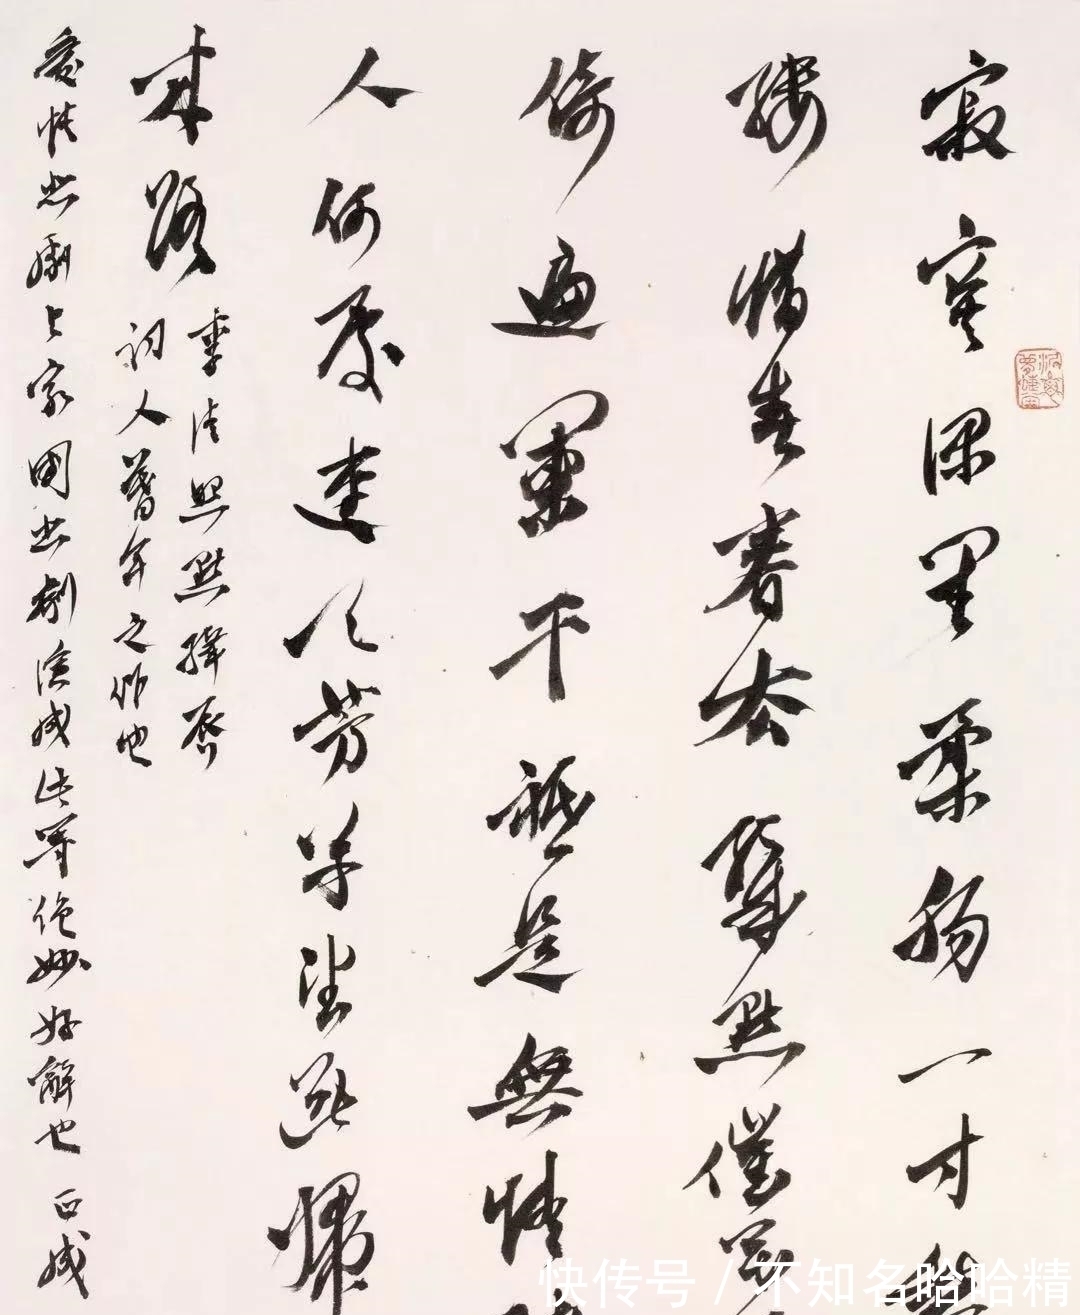 寂寞深閨柔腸一寸愁
縷惜春春去幾點催花
倚遍闌干祗是無情
人何處連天芳草望斷歸
來路
李清照點絳唇
詞人暮年之作也
愛情悲劇與家國悲劇演成此等絕妙好辭也 正成
快传号 / 不知名哈哈精